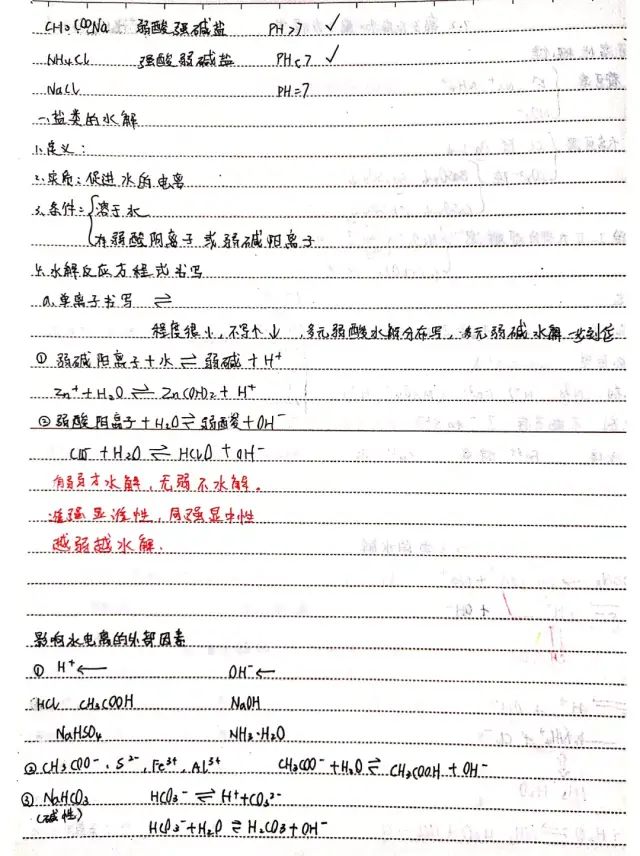 CH3COONa 弱酸强碱盐 PH>7 ✓
NH4Cl 强酸弱碱盐 PH<7 ✓
NaCl PH=7
一、盐类的水解
1、定义:
2、实质:促进水的电离
3、条件:{溶于水
有弱酸阴离子或弱碱阳离子
4、水解反应方程式书写
a、单离子书写 ⇌
程度很小,不写个↓,多元弱酸水解分布写,多元弱碱水解一步到位
① 弱碱阳离子+水⇌弱碱+H⁺
Zn²⁺+H2O⇌Zn(OH)2+H⁺
② 弱酸阴离子+H2O⇌弱酸+OH⁻
ClO⁻+H2O⇌HClO+OH⁻
有弱才水解,无弱不水解。
谁强显谁性,同强显中性
越弱越水解.
影响水电离的外部因素
① H⁺← OH⁻←
HCl CH3COOH NaOH
NaHSO4 NH3·H2O
② CH3COO⁻、S²⁻,Fe³⁺,Al³⁺ CH3COO⁻+H2O⇌CH3COOH+OH⁻
③ NaHCO3 HCO3⁻⇌H⁺+CO3²⁻
(碱性) HCO3⁻+H2O⇌H2CO3+OH⁻